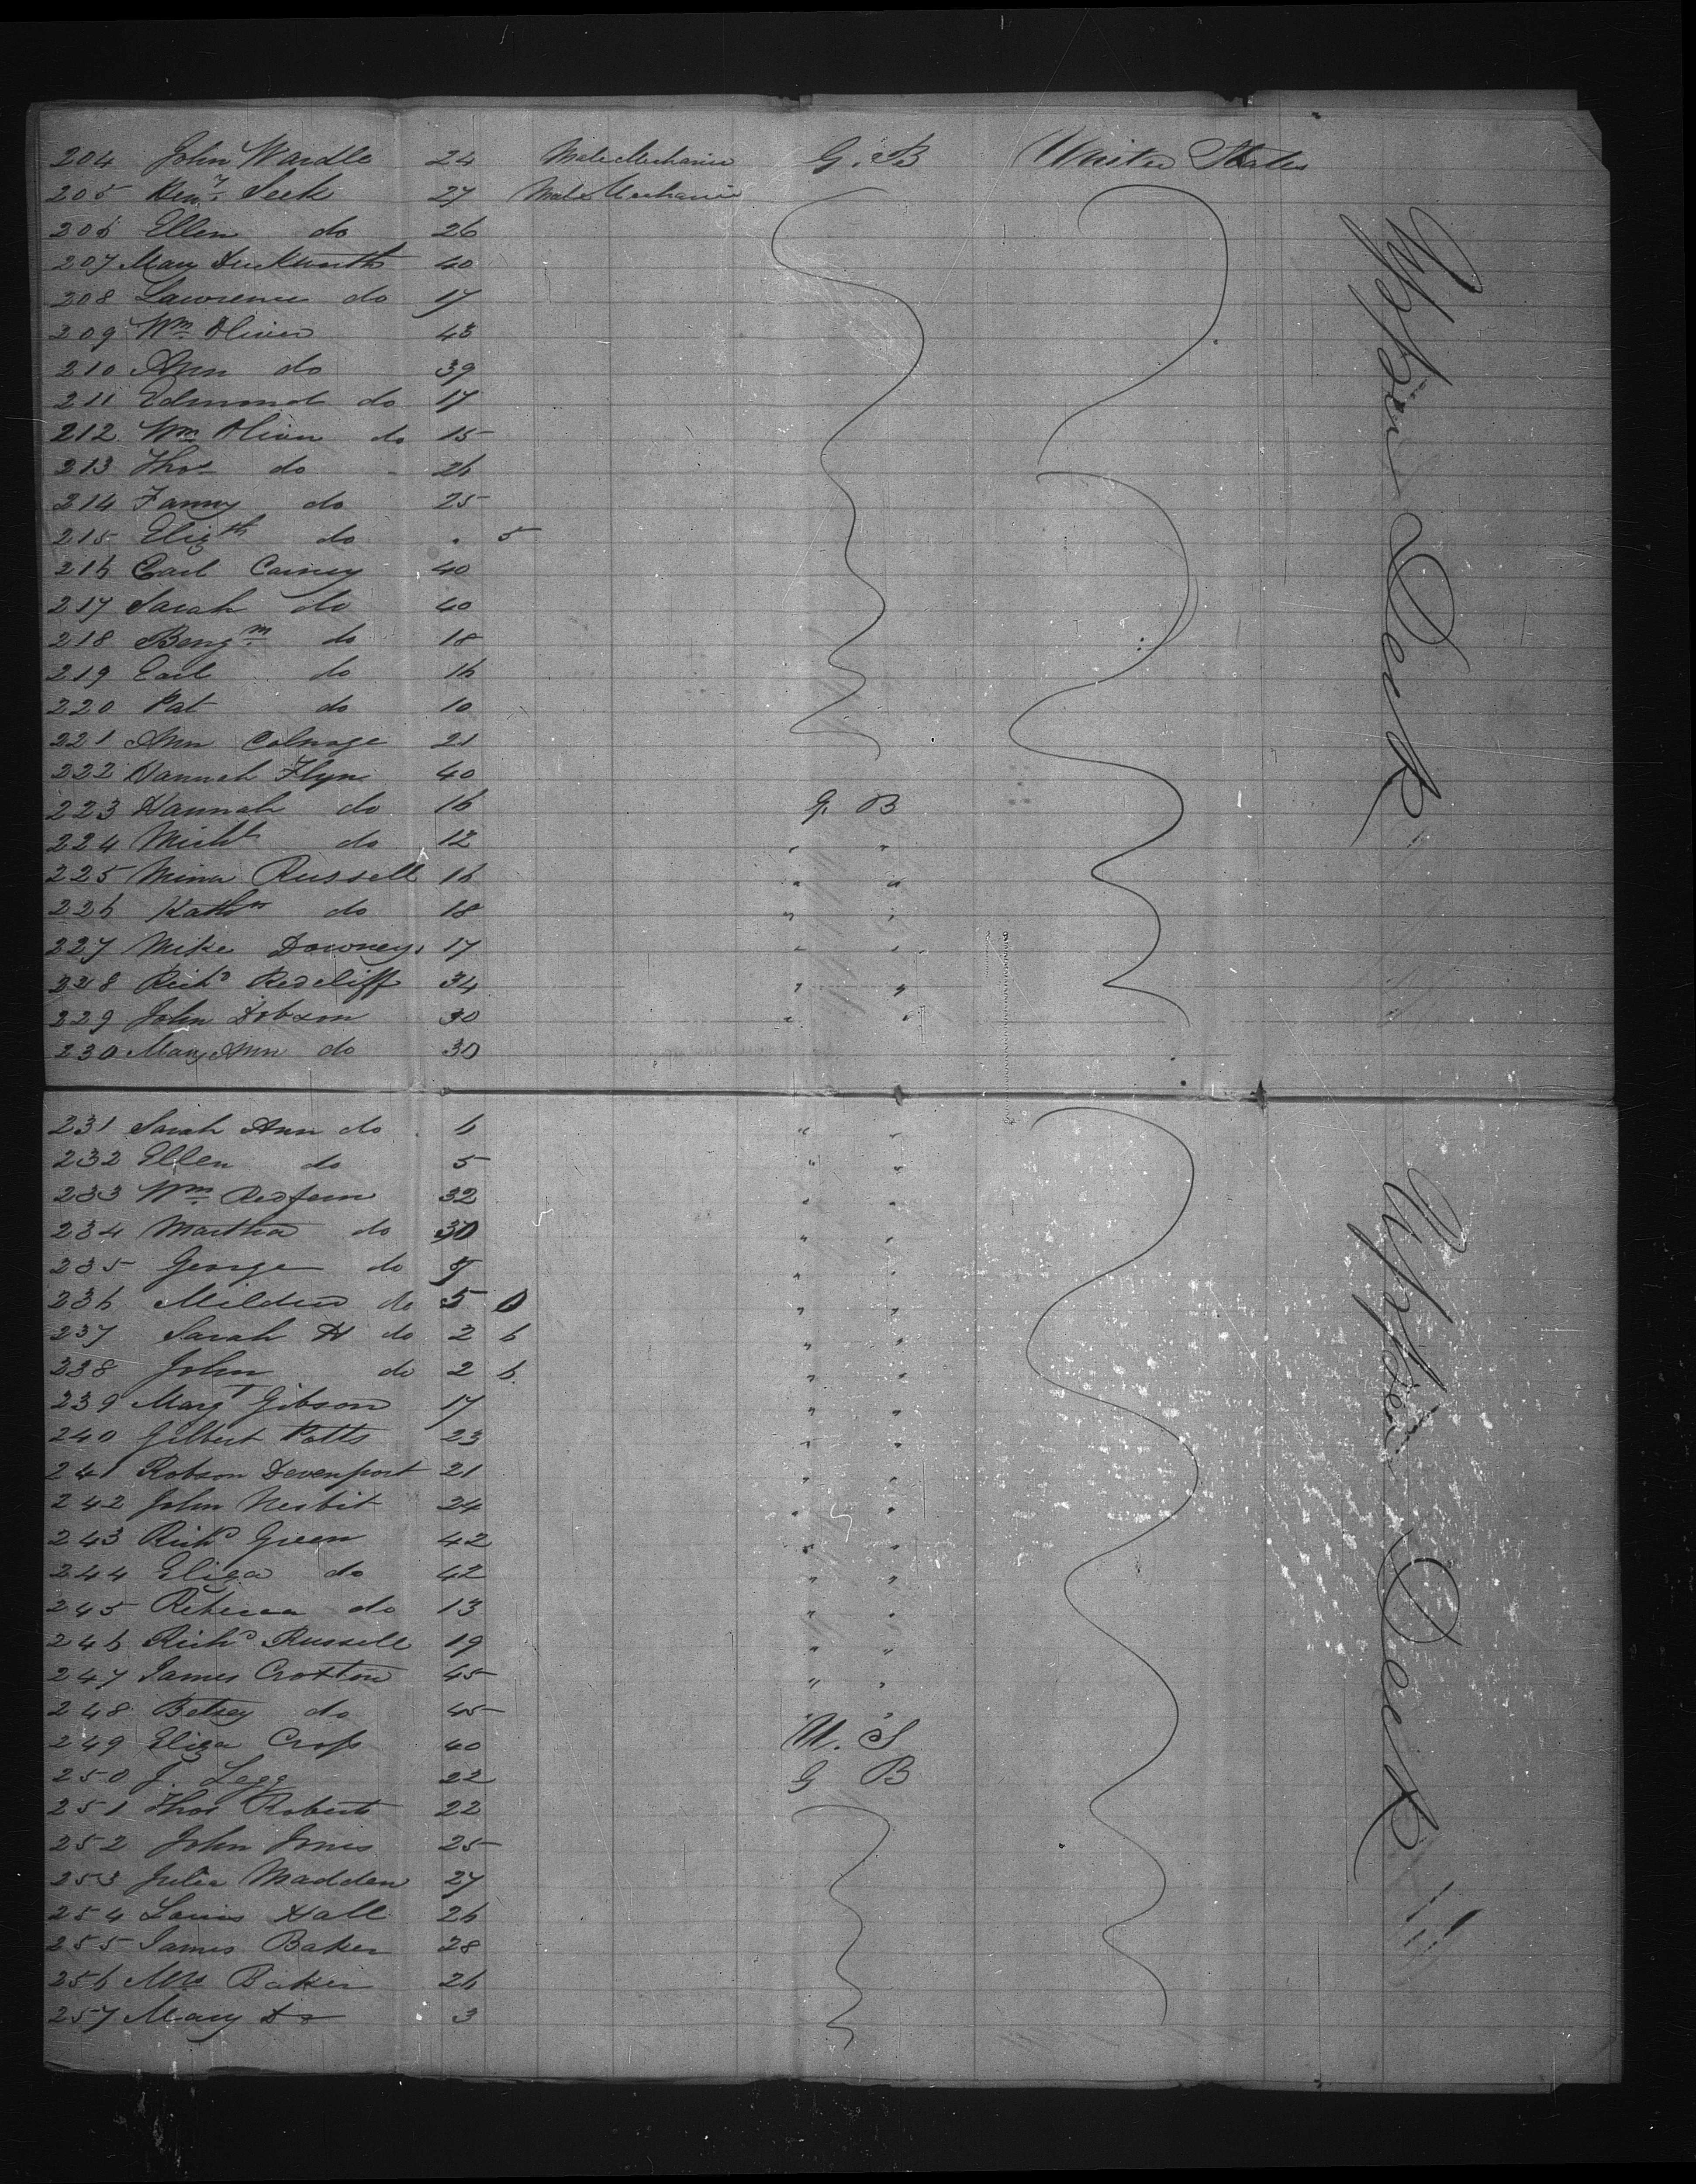 204 John Wardle 24 Male Mechanic G. B United States
205 Heny Seek 27 Male Mechanic
206 Ellen do 26
207 Mary Duckworth 40
208 Lawrence do 17
209 Wm Oliver 43
210 Ann do 39
211 Edmund do 17
212 Wm Oliver do 15
213 Thos do 26
214 Fanny do 25
215 Elizth do . 5
216 Earl Carney 40
217 Sarah do 40
218 Benjm do 18
219 Earl do 16
220 Pat do 10
221 Ann Colnage 21
222 Hannah Flyn 40
223 Hannah do 16 G. B
224 Michl do 12 " "
225 Mina Russell 16 " "
226 Kathn do 18 " "
227 Mike Downey 17 " "
228 Richd Redcliff 34 " "
229 John Dobson 30 " "
230 Mary Ann do 30
Upper Deck
231 Sarah Ann do 6 " "
232 Ellen do 5 " "
233 Wm Redfern 32 " "
234 Martha do 30 " "
235 George do 8 " "
236 Mildred do 5 0 " "
237 Sarah H do 2 6 " "
238 John do 2 6 " "
239 Margt Gibson 17 " "
240 Gilbert Potts 23 " "
241 Robson Devenport 21 " "
242 John Nesbit 24 " "
243 Richd Green 42 " "
244 Eliza do 42 " "
245 Rebecca do 13 " "
246 Richd Russell 19 " "
247 James Croxton 45 " "
248 Betsey do 45 " "
249 Eliza Cross 40 U. S
250 J. Legg 22 G B
251 Thos Roberts 22
252 John Jones 25
253 Julia Madden 27
254 Louis Hall 26
255 James Baker 28
256 Mrs Baker 26
257 Mary Do 3
Upper Deck